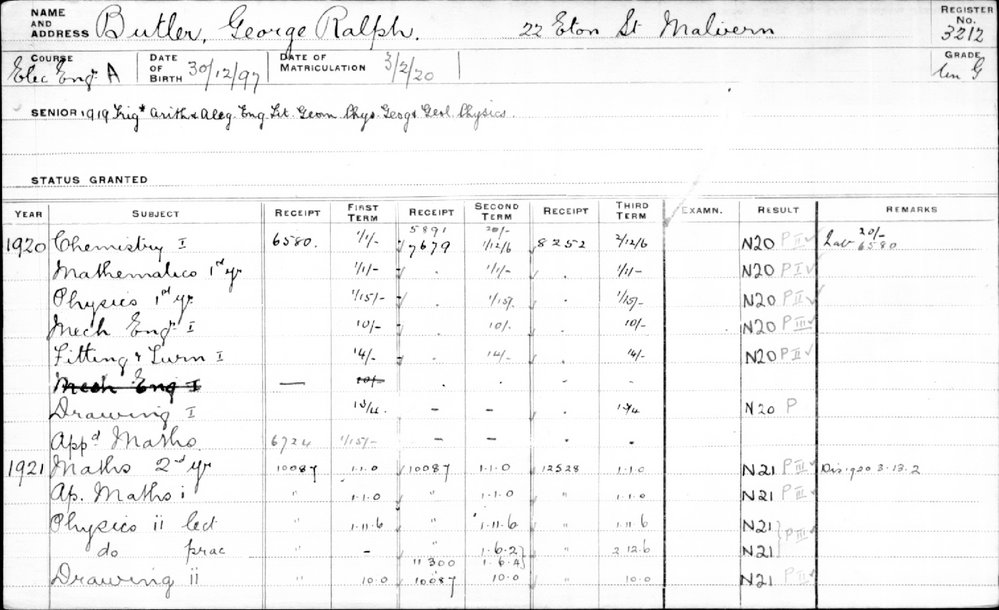 NAME AND ADDRESS Butler, George Ralph. 22 Eton St Malvern REGISTER No. 3212
COURSE Elec Eng. A DATE OF BIRTH 30/12/97 DATE OF MATRICULATION 3/2/20 GRADE G
SENIOR 1919 Trig. Arith & Aleg. Eng. Lit. Geom. Phys. Geog & Geol. Physics.
STATUS GRANTED
YEAR SUBJECT RECEIPT FIRST TERM RECEIPT SECOND TERM RECEIPT THIRD TERM EXAMN. RESULT REMARKS
5891 20/- 20/-
1920 Chemistry I 6580. 1/1/- 7679 1/12/6 8252 2/12/6 N20 P II ✓ Lab 6580
Mathematics 1st yr 1/1/- . 1/1/- . 1/1/- N20 P I ✓
Physics 1st yr. 1/15/- . 1/15/. . 1/15/- N20 P II ✓
Mech Eng. I 10/- . 10/. . 10/- N20 P III ✓
Fitting & Turn I 14/- . 14/- . 14/- N20 P II ✓
Mech Eng I — 10/- . . - -
Drawing I — — . N20 P
Appd Maths. 6724 1/15/- — — . .
1921 Maths 2nd yr 10087 1.1.0 10087 1.1.0 12528 1.1.0 N21 P III ✓ Dis. 920 3.13.2
Ap. Maths i " 1.1.0 " 1.1.0 " 1.1.0 N21 P III ✓
Physics ii lect " 1.11.6 " 1.11.6 " 1.11.6 N21 } P III ✓
do prac " - 1.6.2 } " 2 12.6 N21
11300 1.6.4 }
Drawing ii " 10.0 10087 10.0 " 10.0 N21 P II ✓